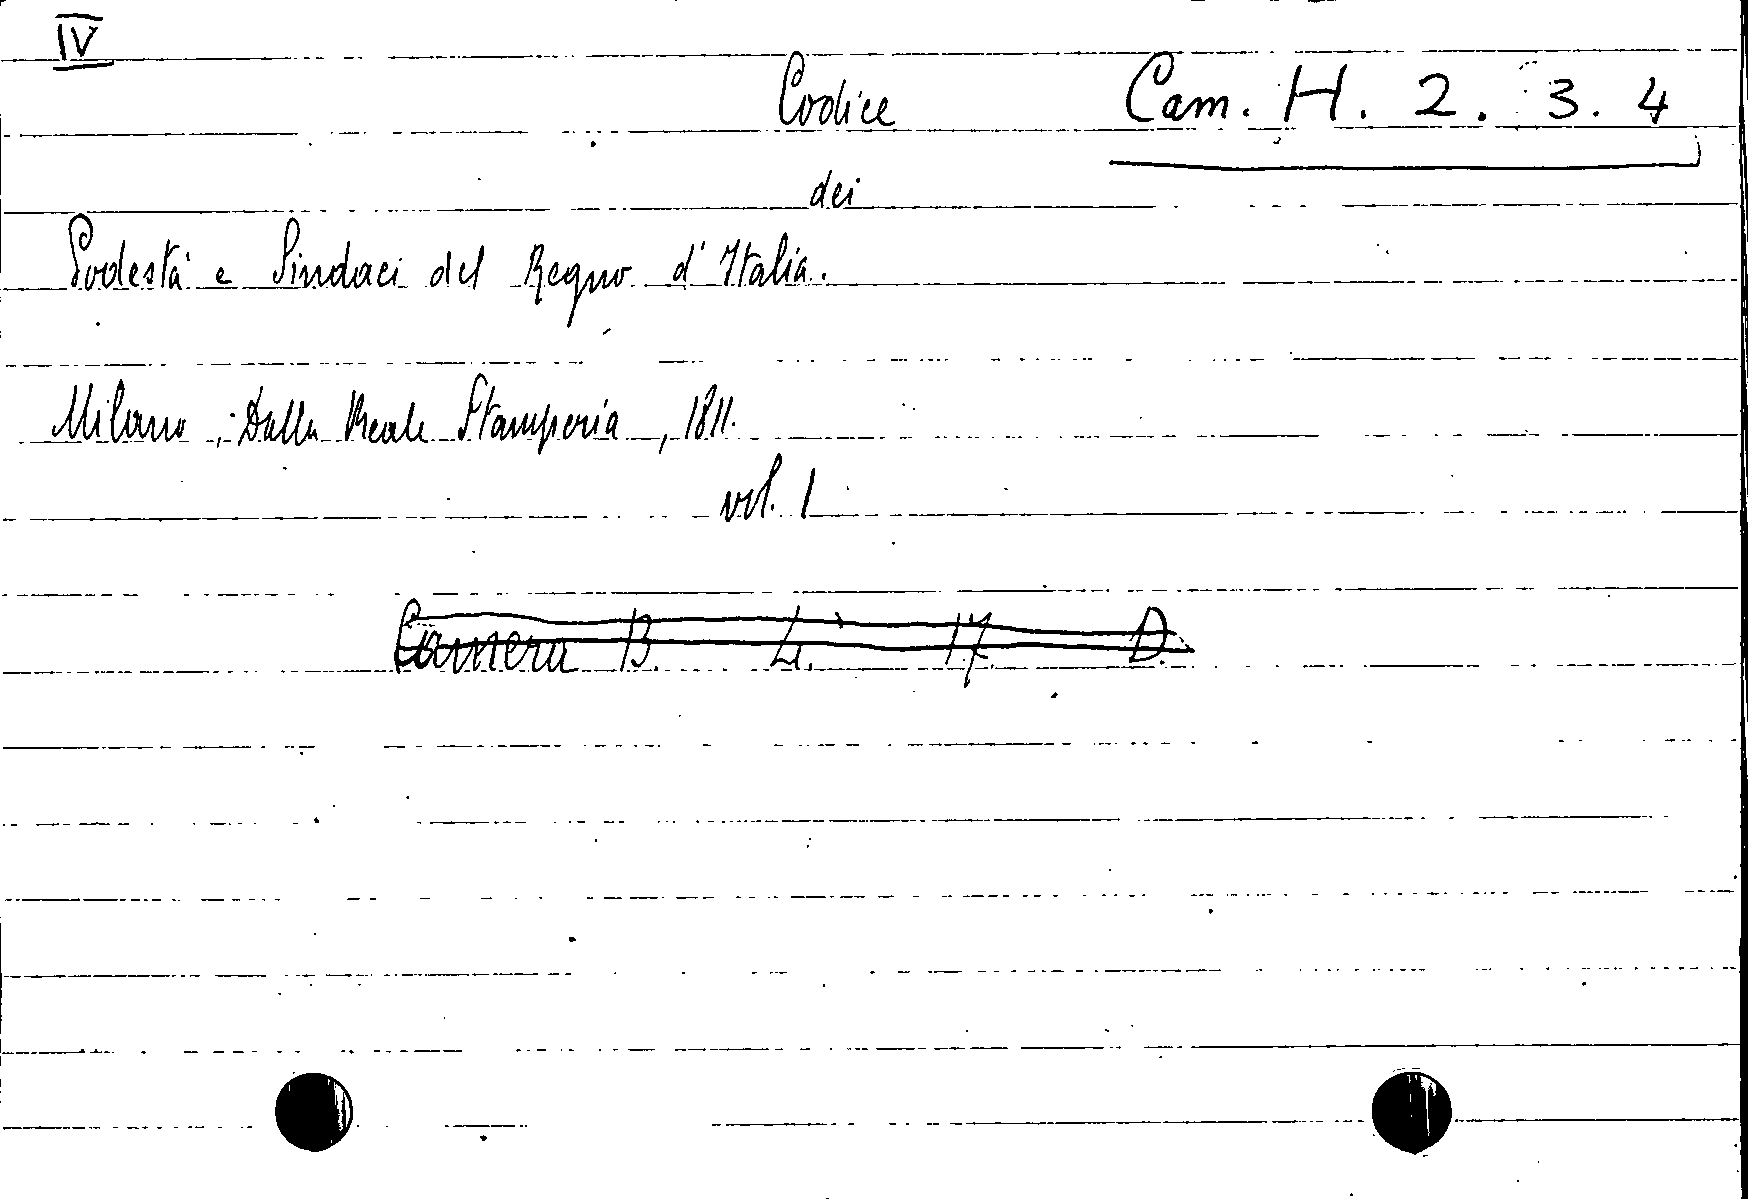 IV
Codice Cam. H. 2. 3. 4
dei
Podestà e Sindaci del Regno d'Italia.
Milano, Dalla Reale Stamperia, 1811.
vol. 1
Camera B. 4. 17. D.